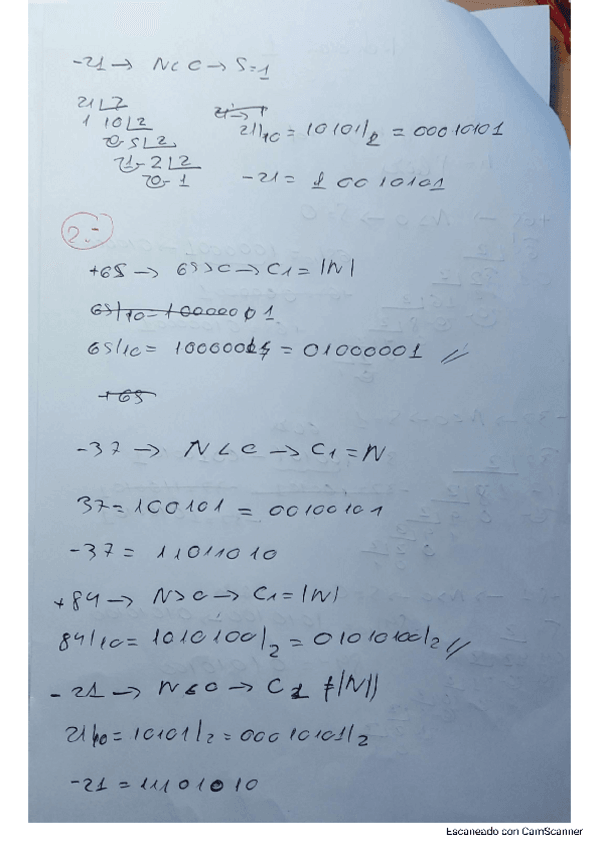 -21 → N<0 → S=1
21 | 2
1 10 | 2
0 5 | 2
1 2 | 2
0 1
21/10 = 10101/2 = 00010101
-21 = 1 0010101
2.-
+65 → 65>0 → C1 = |N|
65/10 = 1000001
65/10 = 1000001 = 01000001 //
+65
-37 → N<0 → C1 = N
37 = 100101 = 00100101
-37 = 11011010
+84 → N>0 → C1 = |N|
84/10 = 1010100/2 = 01010100/2 //
-21 → N<0 → C1 ≠ |N|
21/10 = 10101/2 = 00010101/2
-21 = 11101010
Escaneado con CamScanner